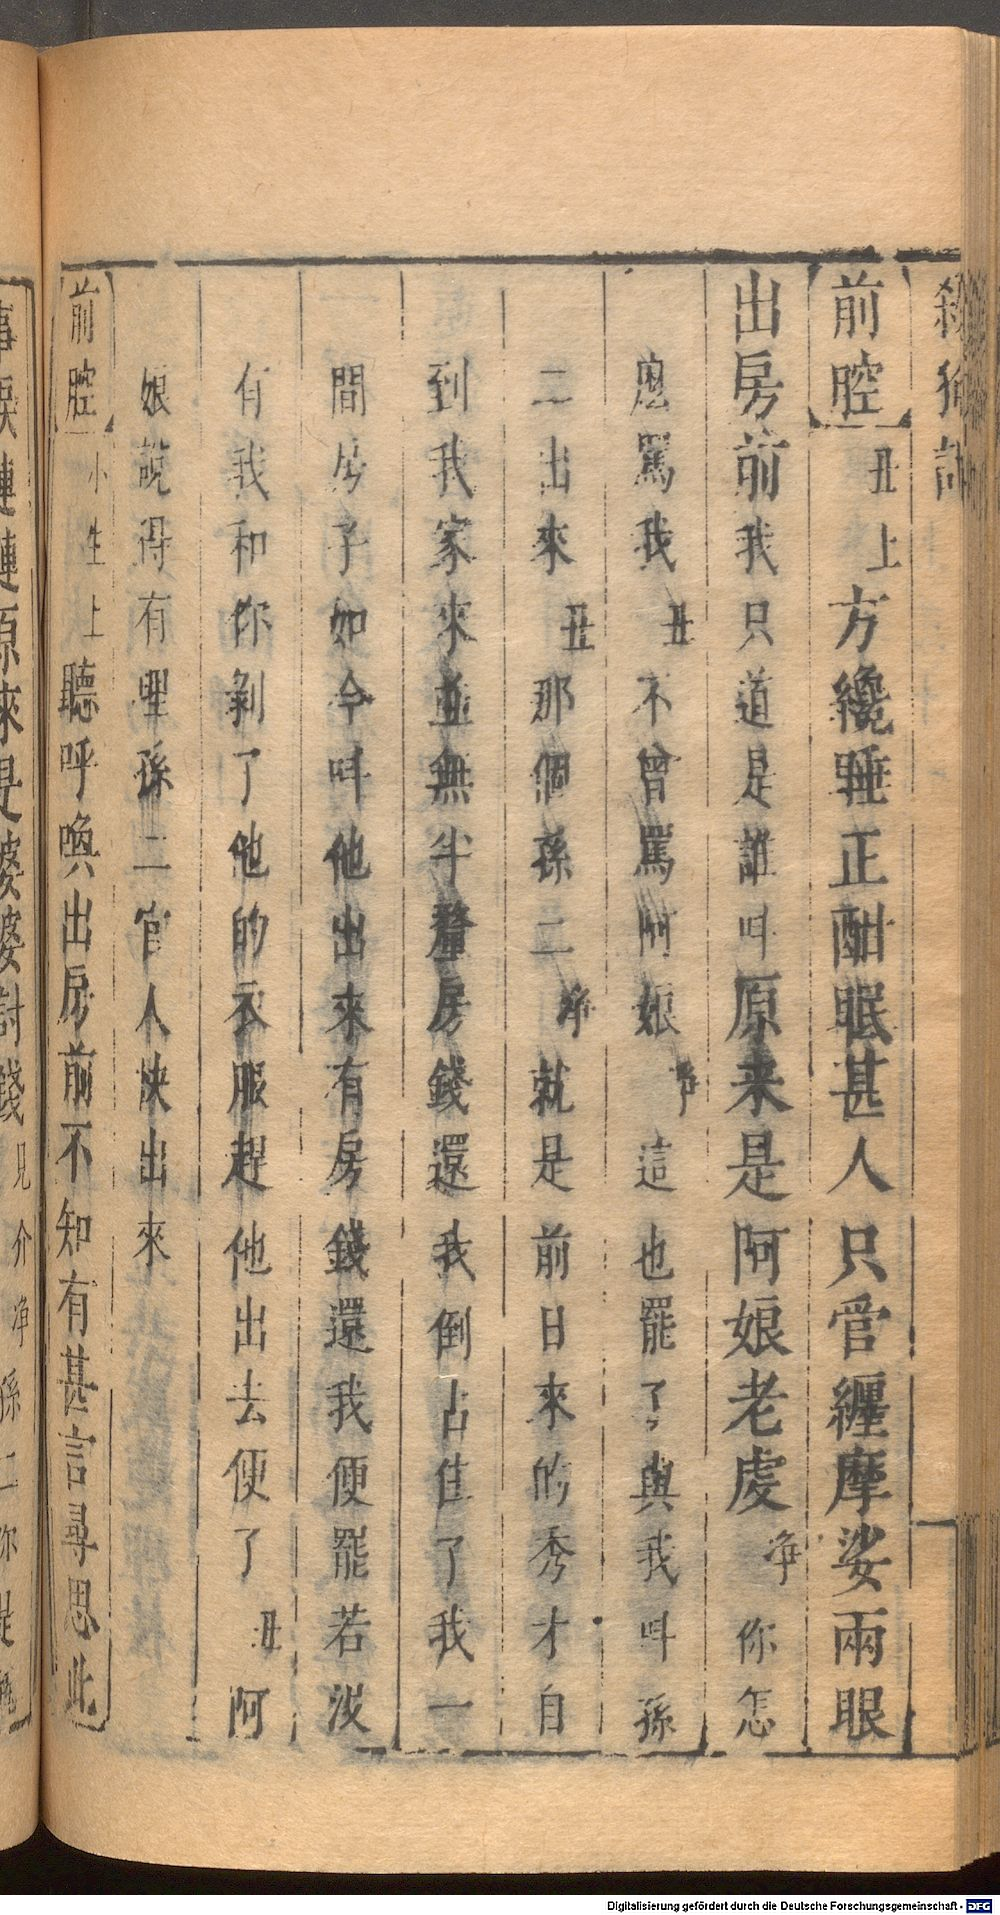 殺狗記
前腔丑上方纔睡正酣眠甚人只管纏摩娑兩眼
出房前我只道是誰叫原来是阿娘老虔净你怎
麽罵我丑不曾罵阿娘净這也罷了與我叫孫
二出來丑那個孫二净就是前日來的秀才自
到我家來並無半釐房錢還我倒占住了我一
間房子如今叫他出來有房錢還我便罷若没
有我和你剝了他的衣服趕他出去便了丑阿
娘說得有理孫二官人快出來
前腔小生上聽呼喚出房前不知有甚言尋思此
事淚漣漣原來是婆婆討錢見介净孫二你是
Digitalisierung gefördert durch die Deutsche Forschungsgemeinschaft - DFG